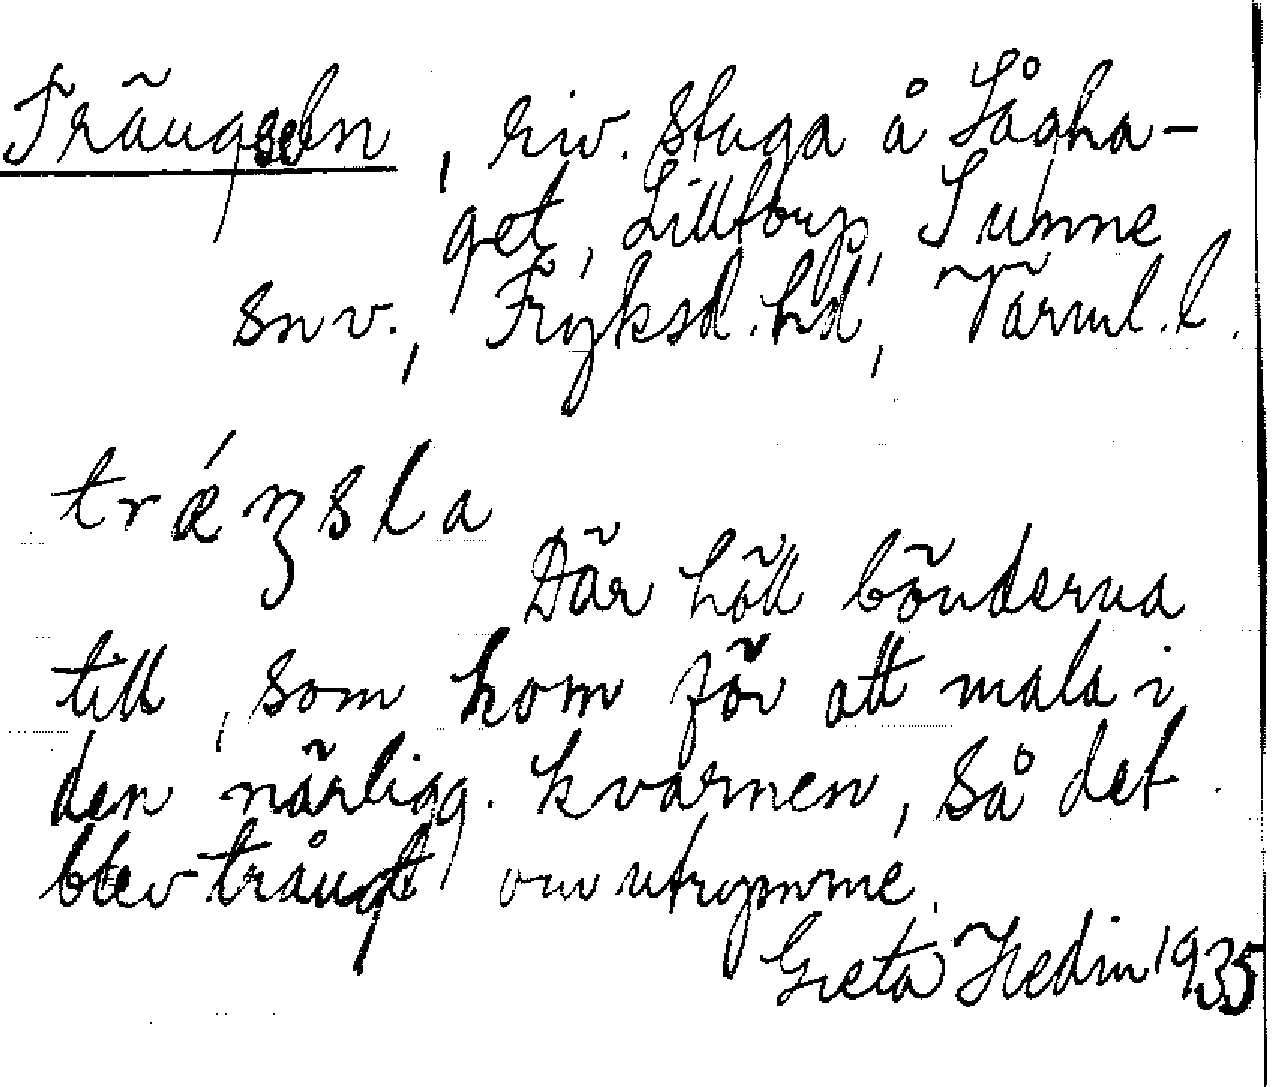 Trängseln, riv. stuga å Sågha-
get, Lilltorp, Sunne
snv., Fryksd. hd, Värml. l.
trǽŋsla
Där höll bönderna
till, som kom för att mala i
den närligg. kvarnen, så det
blev trångt om utrymme.
Greta Hedin 1935